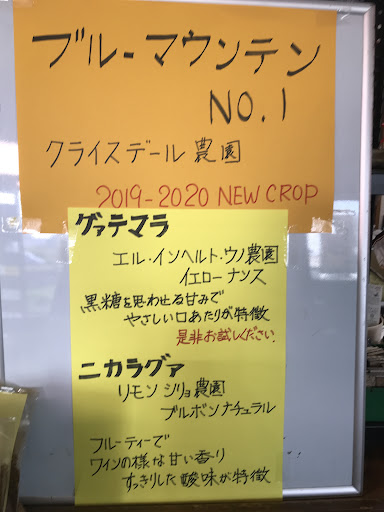 ブルーマウンテン
NO.1
クライスデール農園
2019-2020 NEW CROP
グァテマラ
エル・インヘルト・ウノ農園
イエローナンス
黒糖を思わせる甘みで
やさしい口あたりが特徴
是非お試しください
ニカラグァ
リモンシリョ農園
ブルボンナチュラル
フルーティーで
ワインの様な甘い香り
すっきりした酸味が特徴